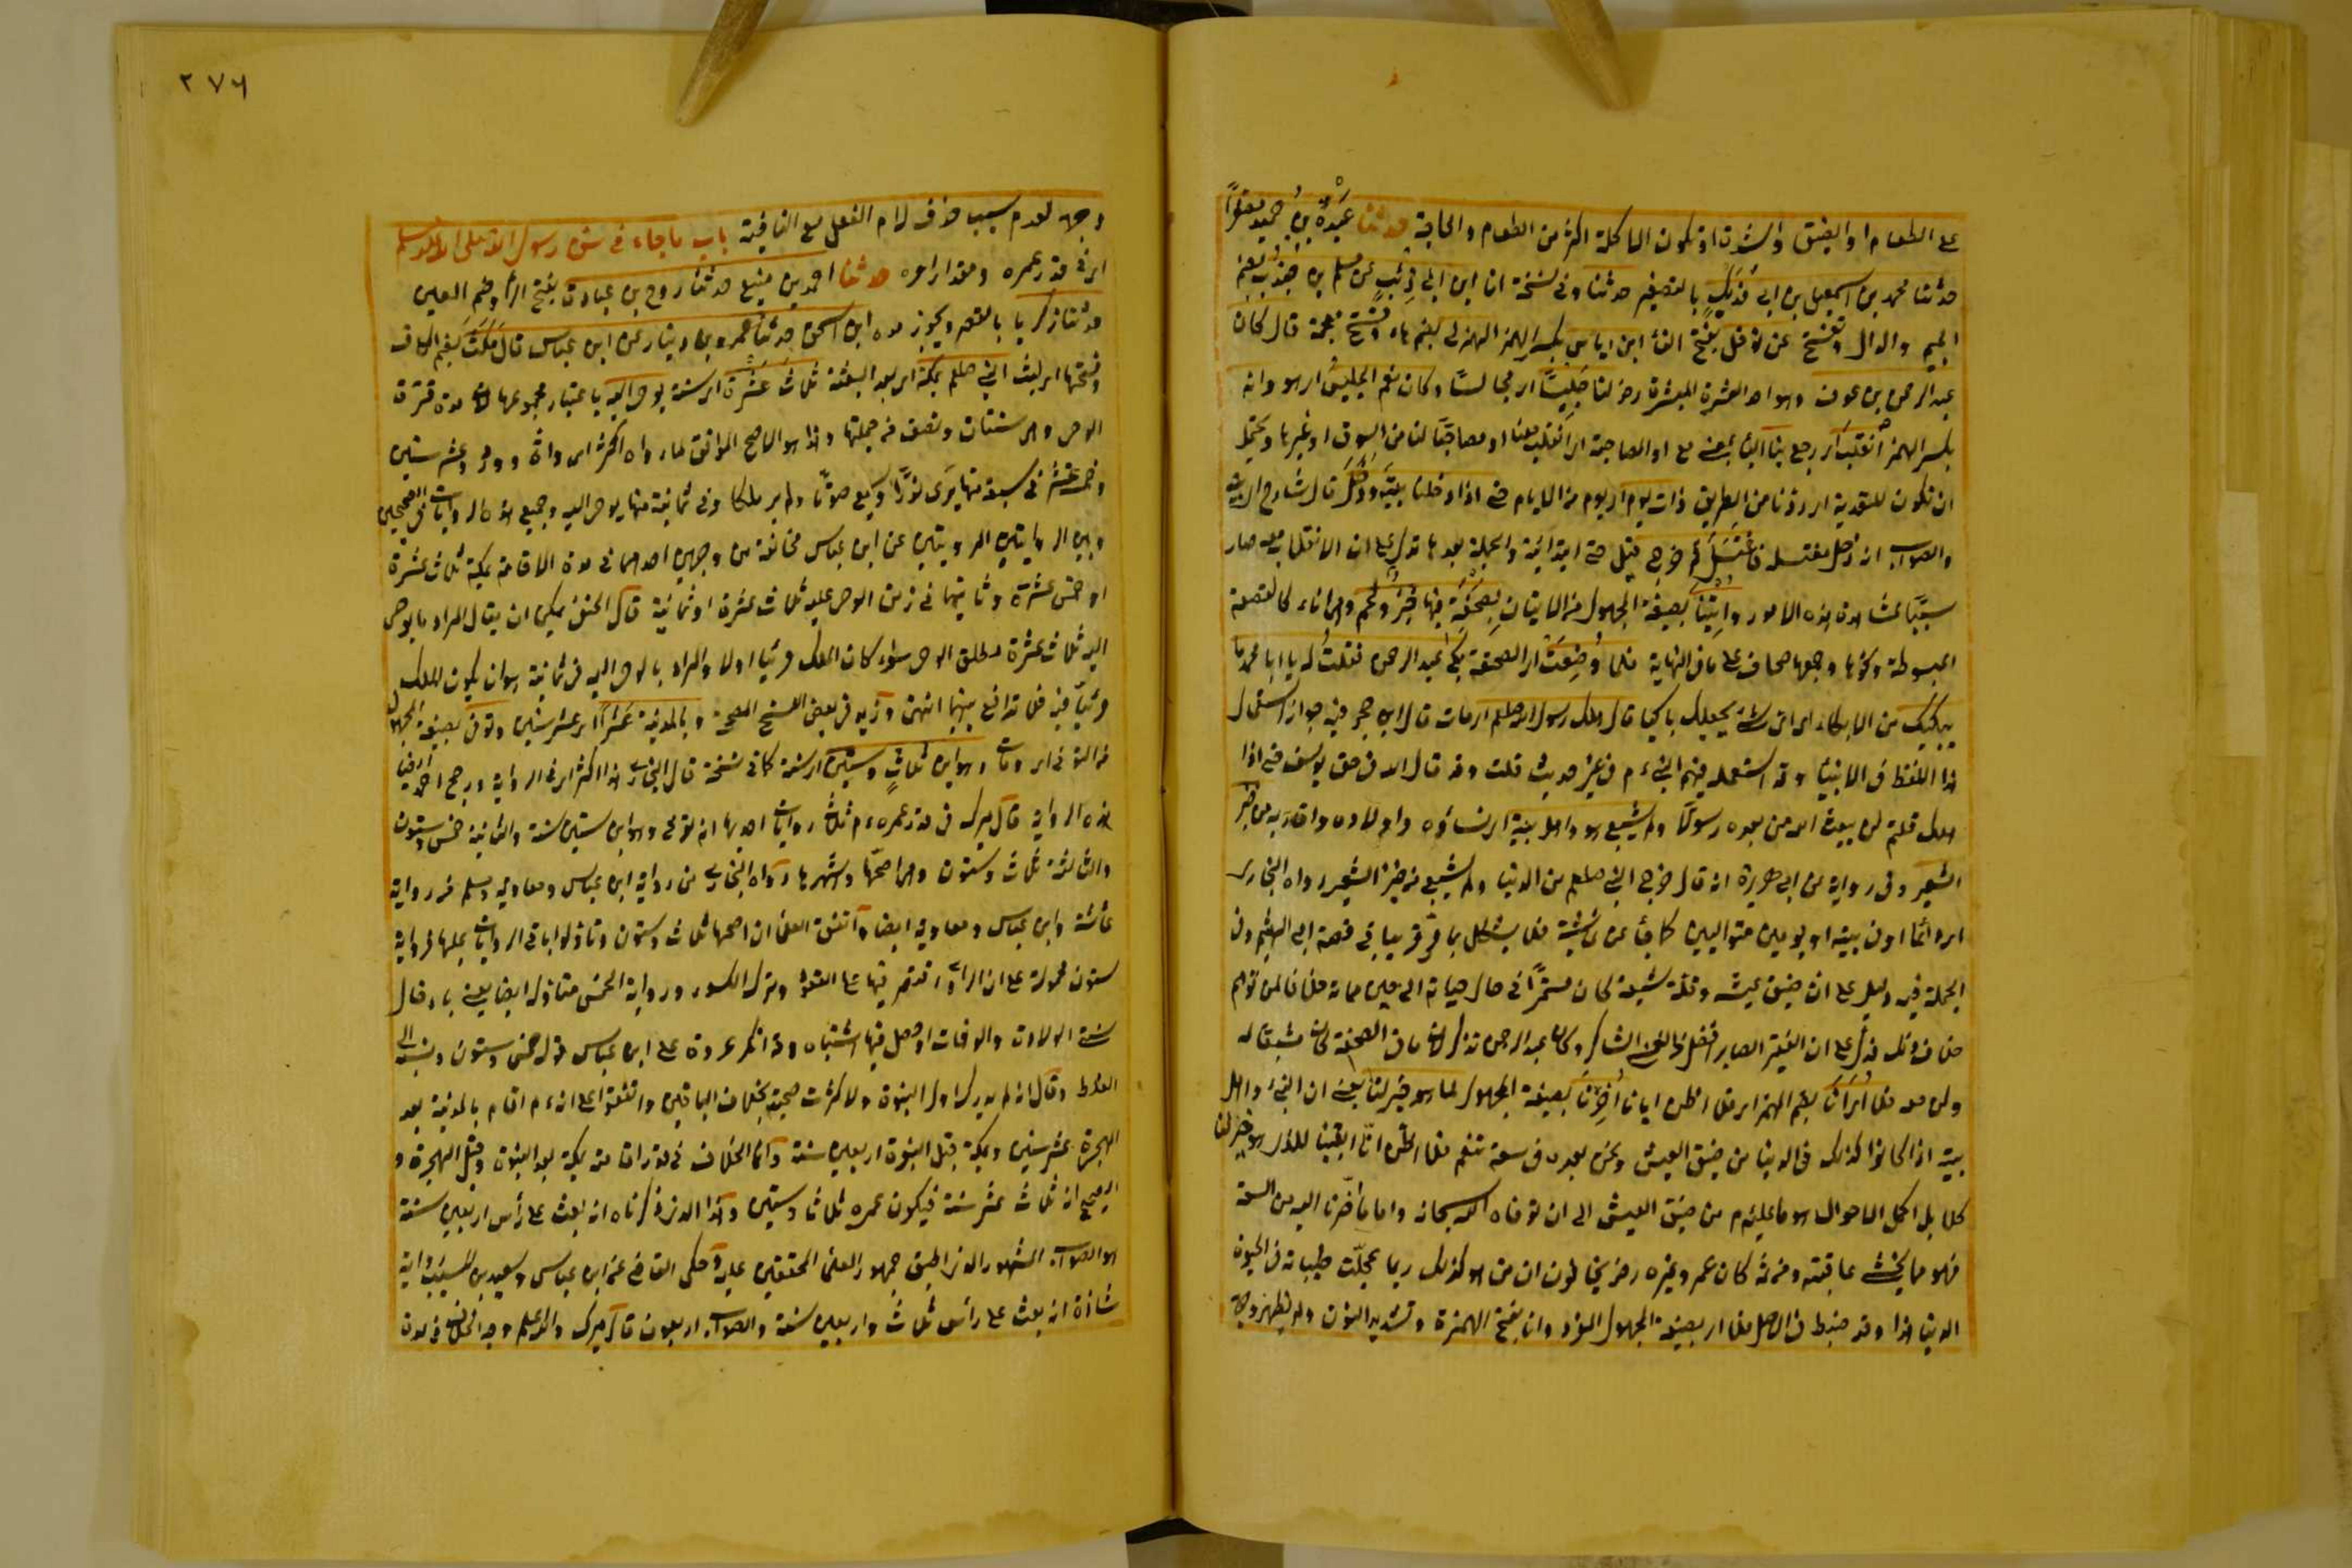 على الطعام او الضيق والشدة اذ تكون الاكلة اكثر من الطعام والحاجة حدثنا عبد بن حميد
حدثنا محمد بن اسمعيل بن ابى فديك بالتصغير حدثنا وفى نسخة انا ابن ابى ذئب عن مسلم بن جندب بضم
الجيم والدال وتفتح عن نوفل بفتح الفاء ابن اياس بكسر الهمز الهذلى بضم هاء وفتح معجمة قال كان
عبد الرحمن بن عوف وهو احد العشرة المبشرة رضى لنا جليسا اى مجالسا وكان نعم الجليس اى هو وانه
بكسر الهمز انقلب اى رجع بنا الباء بمعنى مع او للمصاحبة اى انقلب معنا او مصاحبا لنا من السوق او غيرها ويحتمل
ان تكون للتعدية اى ردنا من الطريق ذات يوم اى يوم من الايام حتى اذا دخلنا بيته ودخل قال شارح
والصواب انه دخل مغتسله فاغتسل ثم خرج قيل حتى ابتدائية والجملة بعدها تدل على ان الانقلاب معه صار
سببا لمشاهدة هذه الامور واتينا بصيغة المجهول من الاتيان بصحفة فيها خبز ولحم وهى اناء كالقصعة
المبسوطة ونحوها وجمعها صحاف على ما فى النهاية فلما وضعت اى الصحفة بكى عبد الرحمن فقلت له يا ابا محمد ما
يبكيك من الابكاء اى اى شىء يجعلك باكيا قال هلك رسول الله صلعم اى مات قال ابن حجر فيه جواز استعمال
هذا اللفظ فى الانبياء وقد استعمله فيهم النبى م فى غير حديث قلت وقد قال الله فى حق يوسف حتى اذا
هلك قلتم لن يبعث الله من بعده رسولا ولم يشبع هو واهل بيته اى نساؤه واولاده واقاربه من خبز
الشعير وفى رواية عن ابى هريرة انه قال خرج النبى صلعم من الدنيا ولم يشبع من خبز الشعير رواه البخارى
اى دائما او فى بيته او يومين متواليين كما جاء عن عائشة فلا يشكل بما مر قريبا فى قصة ابى الهيثم وفى
الجملة فيه دليل على ان ضيق عيشه وقلة شبعه كان مستمرا فى حال حياته الى حين مماته خلافا لمن توهم
خلاف ذلك فدل على ان الفقير الصابر افضل من الغنى الشاكر وكان عبد الرحمن تذكر لان ما فى الصحفة كان مشبعا له
ولمن معه فلا ارانا بضم الهمز اى فلا اظن ايانا اخرنا بصيغة المجهول لما هو خير لنا يعنى ان النبى واهل
بيته اذا كانوا كذلك فى الدنيا من ضيق العيش ونحن بعده فى سعة تنعم فلا اظن انا ابقينا للذى هو خير لنا
كلا بل اكمل الاحوال هو ما عليه م من ضيق العيش الى ان توفاه الله سبحانه واما ما اخرنا اليه من السعة
فهو مما يخشى عاقبته ومن ثم كان عمر وغيره رضى يخافون ان من هو كذلك ربما عجلت طيباته فى الحيوة
الدنيا هذا وقد ضبط فى الاصل فلا ار بصيغة المجهول المفرد وانا بفتح الهمزة وتشديد النون ولم يظهر وجهه
٢٧٦
وجه لعدم سبب حذف لام الفعل مع النافية باب ما جاء فى سن رسول الله صلى الله عليه وسلم
اى فى قدر عمره ومقدار امره حدثنا احمد بن منيع حدثنا روح بن عبادة بفتح الراء وضم العين
حدثنا زكريا بالقصر ويجوز مده ابن اسحق حدثنا عمرو بن دينار عن ابن عباس قال مكث بضم الكاف
وفتحها اى لبث النبى صلعم بمكة اى بعد البعثة ثلاث عشرة اى سنة يوحى اليه باعتبار مجموعها لان مدة فترة
الوحى وهى سنتان ونصف من جملتها وهذا هو الاصح الموافق لما رواه اكثر الرواة وورد عشر سنين
وخمس عشرة فى سبعة منها يرى نورا ويسمع صوتا ولم ير ملكا وفى ثمانية منها يوحى اليه وجميع هؤلاء الروايات فى الصحيحين
وبين الروايتين المرويتين عن ابن عباس مخالفة من وجهين احدهما فى مدة الاقامة بمكة ثلاث عشرة
او خمس عشرة وثانيهما فى زمن الوحى عليه ثلاث عشرة او ثمانية قال الحنفى يمكن ان يقال المراد بالوحى
اليه ثلاث عشرة مطلق الوحى سواء كان الملك مرئيا اولا والمراد بالوحى اليه فى ثمانية هو ان يكون الملك
مرئيا فيه فلا تدافع بينهما انتهى وزيد فى بعض النسخ المصححة وبالمدينة عشرا اى عشر سنين وتوفى بصيغة المجهول
من التوفى اى ومات وهو ابن ثلاث وستين اى سنة كما فى نسخة قال البخارى هذا اكثر اى فى الرواية ورجح احمد ايضا
هذه الرواية قال ميرك فى قدر عمره م ثلاث روايات احديها انه توفى وهو ابن ستين سنة والثانية خمس وستون
والثالثة ثلاث وستون وهى اصحها واشهرها رواه البخارى من رواية ابن عباس ومعاوية ومسلم من رواية
عائشة وابن عباس ومعاوية ايضا واتفق العلماء ان اصحها ثلاث وستون وتأولوا باقى الروايات عليها فرواية
ستون محمولة على ان الراوى اقتصر فيها على العقود وترك الكسور ورواية الخمس متأولة ايضا يعنى بادخال
سنتى الولادة والوفات او حصل فيها اشتباه وقد انكر عروة على ابن عباس قوله خمس وستون ونسبه الى
الغلط وقال انه لم يدرك اول النبوة ولا كثرت صحبته بخلاف الباقين واتفقوا على انه م اقام بالمدينة بعد
الهجرة عشر سنين وبمكة قبل النبوة اربعين سنة وانما الخلاف فى قدر اقامته بمكة بعد النبوة وقبل الهجرة و
الصحيح انه ثلاث عشر سنة فيكون عمره ثلاثا وستين وهذا الذى ذكرناه انه بعث على رأس اربعين سنة
هو الصواب المشهور الذى اطبق جمهور العلماء المحققين عليه وحكى القاضى عن ابن عباس وسعيد بن المسيب رواية
شاذة انه بعث على رأس ثلاث واربعين سنة والصواب اربعون قال ميرك والله اعلم وجه الخلاف فى مدة